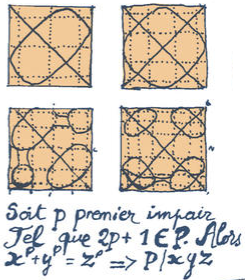 Soit p premier impair
Tel que 2p + 1 ∈ P. Alors
x^p + y^p = z^p => p/xyz